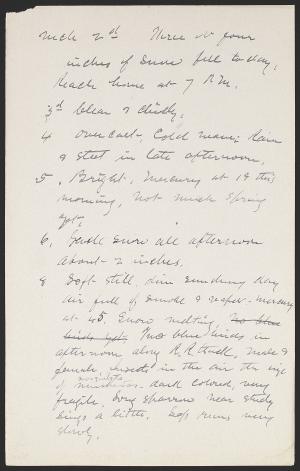 March 2nd Three or four
inches of snow fell to day,
Reach home at 7 P.M.
3rd Clear & chilly,
4 overcast, Cold rain; Rain
& sleet in late afternoon,
5, Bright, mercury at 18 this
morning, not much spring
yet,
6, Gentle snow all afternoon
about - 2 inches,
8 Soft still, dim sunshiny day
air full of smoke & vapor - mercury
at 45, Snow melting, No blue
birds yet, Two blue birds in
afternoon along R.R. track, male &
female, insects in the air the size
of mosquitoes - dark colored, very
fragile, Song sparrow near study
sings a little. Sap runs very
slowly.